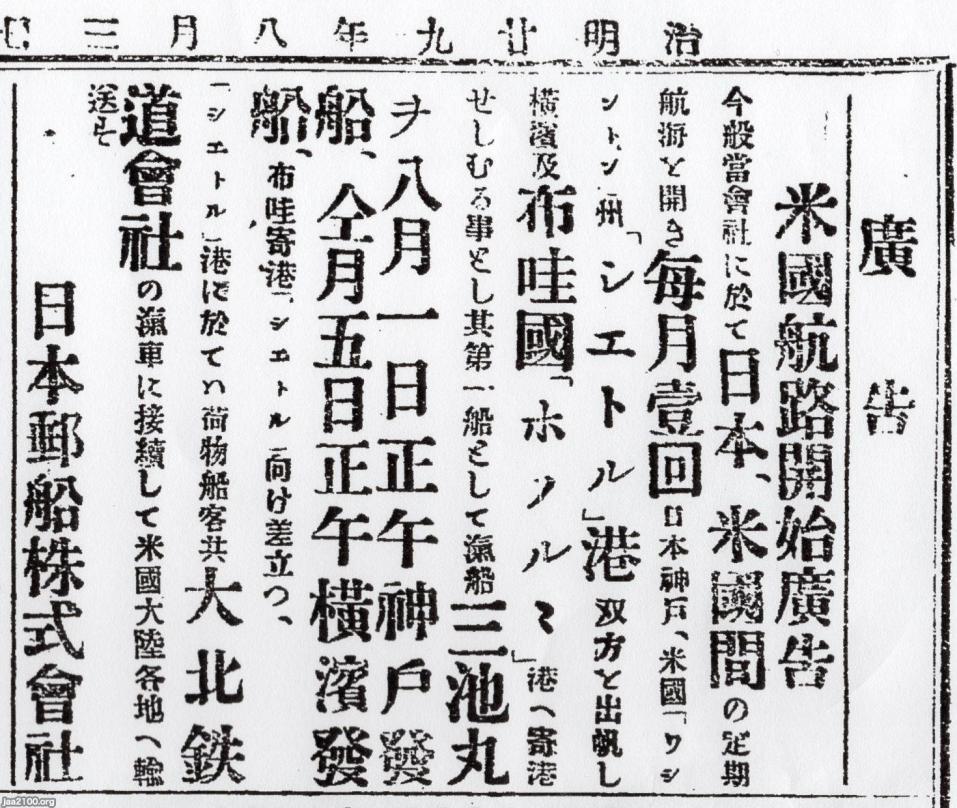 治明廿九年八月三日
廣告
米國航路開始廣告
今般當會社に於て日本、米國間の定期
航海を開き毎月壹回日本神戸、米國「ワシ
ントン」州「シエトル」港双方を出帆し
橫濱及布哇國「ホノルヽ」港へ寄港
せしむる事とし其第一船として滊船三池丸
ヲ八月一日正午神戶發
船、仝月五日正午橫濱發
船、布哇寄港「シエトル」向け差立つ、
「シエトル」港に於てハ荷物船客共大北鉄
道會社の滊車に接續して米國大陸各地へ輸
送す
日本郵船株式會社
jaa2100.org